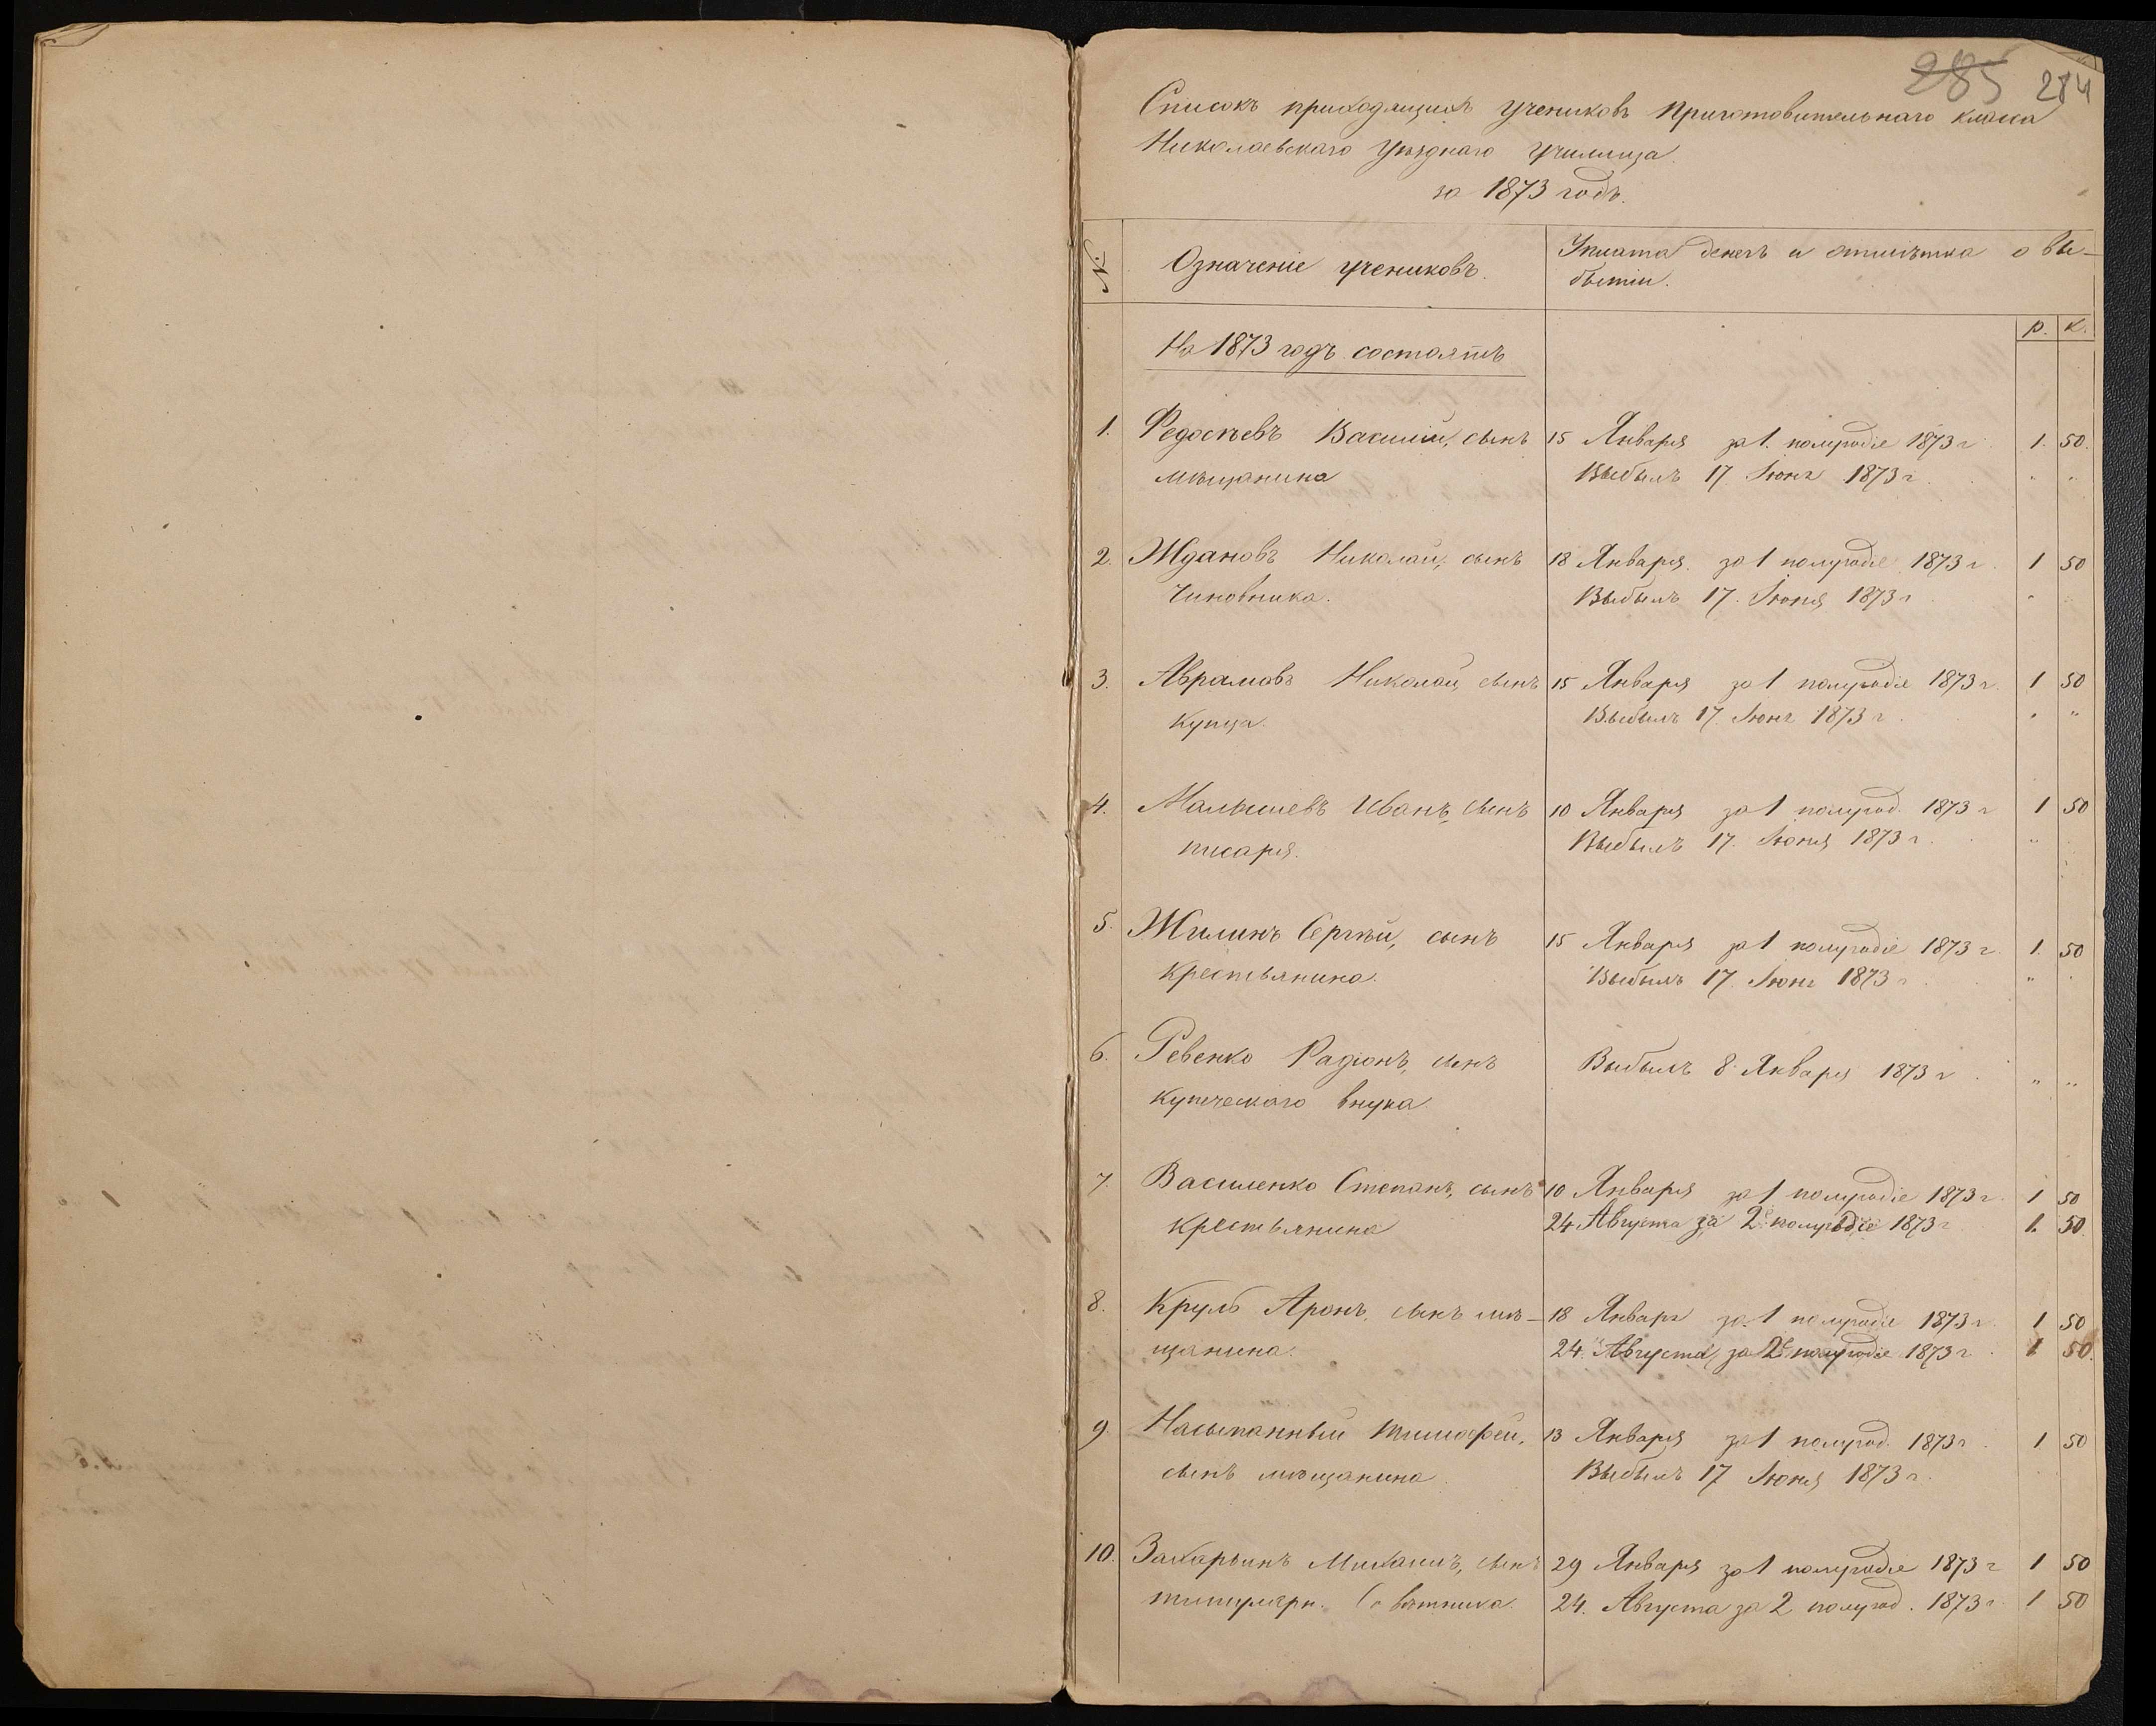 285 284
Списокъ приходящихъ учениковъ Приготовительнаго класса
Николаевскаго Уѣзднаго Училища
за 1873 годъ.
№ Означеніе учениковъ. Уплата денегъ и отмѣтка о вы-
бытіи.
р. к.
На 1873 годъ состоятъ
1. Федосѣевъ Василій, сынъ 15 Января за 1. полугодіе 1873 г 1. 50.
мѣщанина Выбылъ 17 Іюня 1873 г. " "
2. Ждановъ Николай, сынъ 18 Января за 1 полугодіе 1873 г. 1 50
чиновника. Выбылъ 17. Іюня 1873 г "
3. Аврамовъ Николай, сынъ 15 Января за 1 полугодіе 1873 г. 1 50
купца. Выбылъ 17 Іюня 1873 г. " "
4. Малышевъ Иванъ, сынъ 10 Января за 1 полугод. 1873 г 1 50
писаря. Выбылъ 17. Іюня 1873 г. "
5. Жилинъ Сергѣй, сынъ 15 Января за 1 полугодіе 1873 г. 1. 50
крестьянина. Выбылъ 17. Іюня 1873 г. "
6. Ревенко Радіонъ, сынъ Выбылъ 8 Января 1873 г. " "
купеческаго внука.
7. Василенко Степанъ, сынъ 10 Января за 1 полугодіе 1873 г. 1 50
крестьянина 24 Августа за 2е полугодіе 1873 г 1. 50
8. Круль Аронъ, сынъ мѣ- 18 Января за 1 полугодіе 1873 г. 1 50
щанина. 24. Августа за 2е полугодіе 1873 г. 1 50.
9. Насыпанный Тимофей, 13 Января за 1 полугод. 1873 г. 1 50
сынъ мѣщанина. Выбылъ 17 Іюня 1873 г.
10. Захарьинъ Михаилъ, сынъ 29 Января за 1 полугодіе 1873 г 1 50
титулярн. Совѣтника. 24. Августа за 2 полугод. 1873 г. 1 50